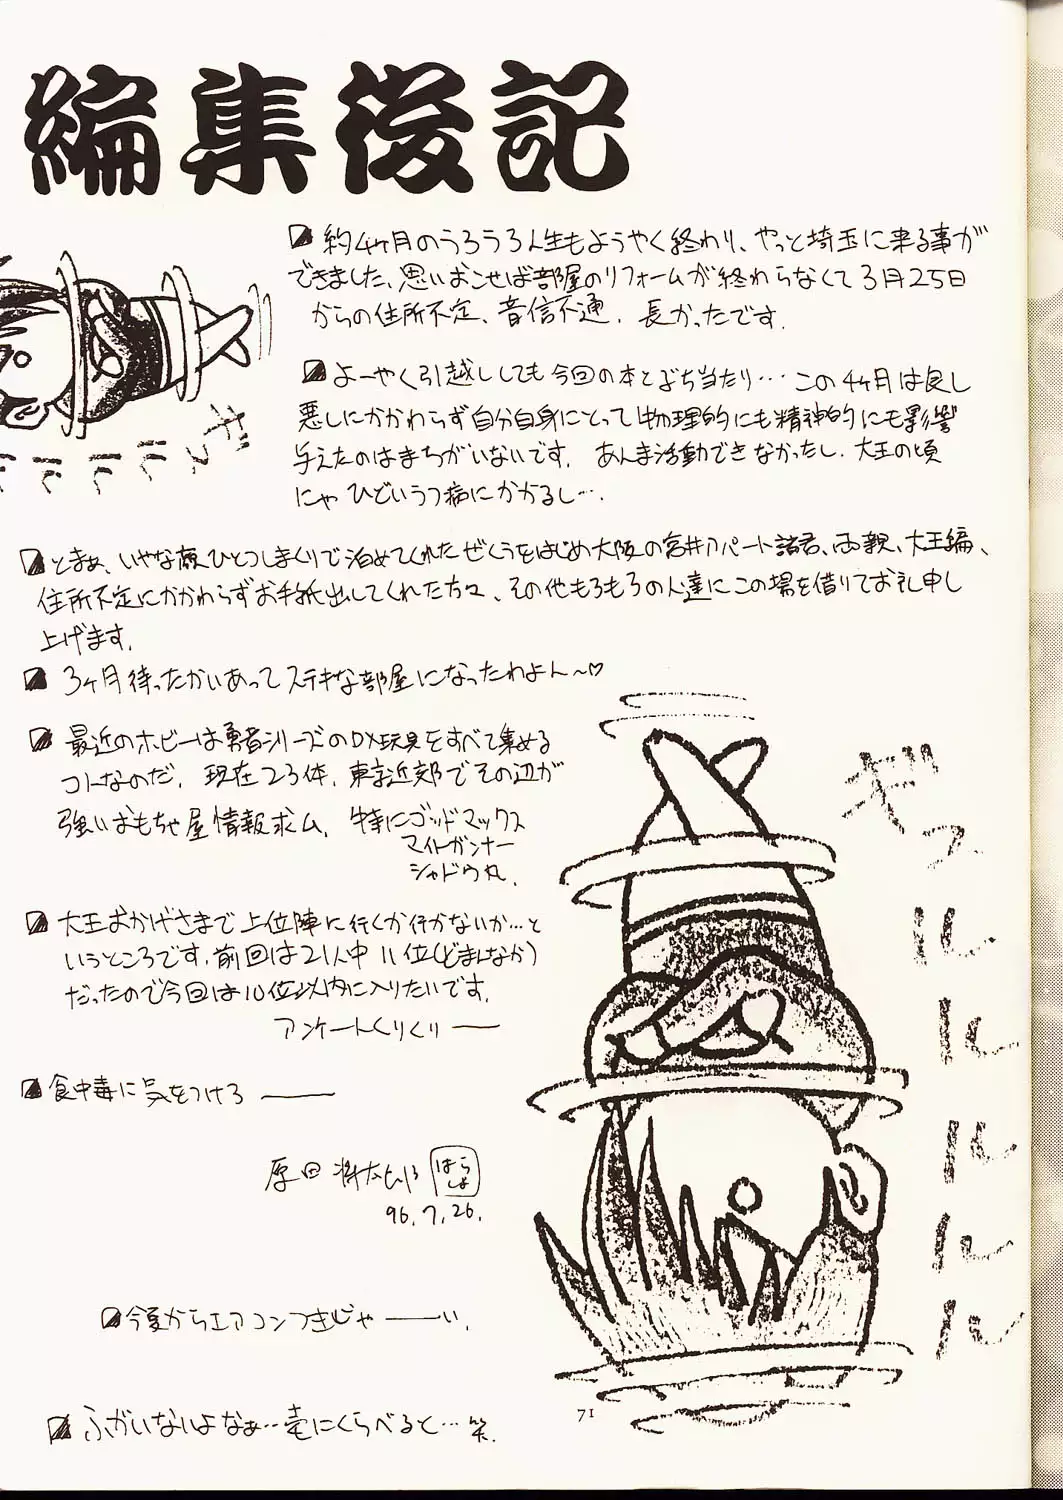 編集後記
約4ヶ月のうろうろ人生もようやく終わり、やっと埼玉に来る事が
できました、思いおこせば部屋のリフォームが終わらなくて3月25日
からの住所不定、音信不通、長かったです.
よーやく引越ししても今回の本とぶち当たり…この4ヶ月は良し
悪しにかかわらず自分自身にとって物理的にも精神的にも影響
与えたのはまちがいないです. あんま活動できなかったし、大王の頃
にゃひどいうつ病にかかるし….
とまぁ、いやな顔ひとつしまくりで泊めてくれたぜくうをはじめ大阪の宮井アパート諸君、両親、大王編、
住所不定にかかわらずお手紙出してくれた方々、その他もろもろの人達にこの場を借りてお礼申し
上げます.
3ヶ月待ったかいあってステキな部屋になったわよん〜♡
最近のホビーは勇者シリーズのDX玩具をすべて集める
コトなのだ. 現在23体. 東京近郊でその辺が
強いおもちゃ屋情報求ム. 特にゴッドマックス
マイトガンナー
シャドウ丸.
大王おかげさまで上位陣に行くか行かないか…と
いうところです. 前回は21人中11位(どまんなか)
だったので今回は10位以内に入りたいです.
アンケートくりくりー
食中毒に気をつけろ ——
原田将太郎 はらしょ
96.7.26.
今夏からエアコンつきじゃ——い.
ふがいないよなぁ…竜にくらべると… 笑.
ギュルルルルル
71